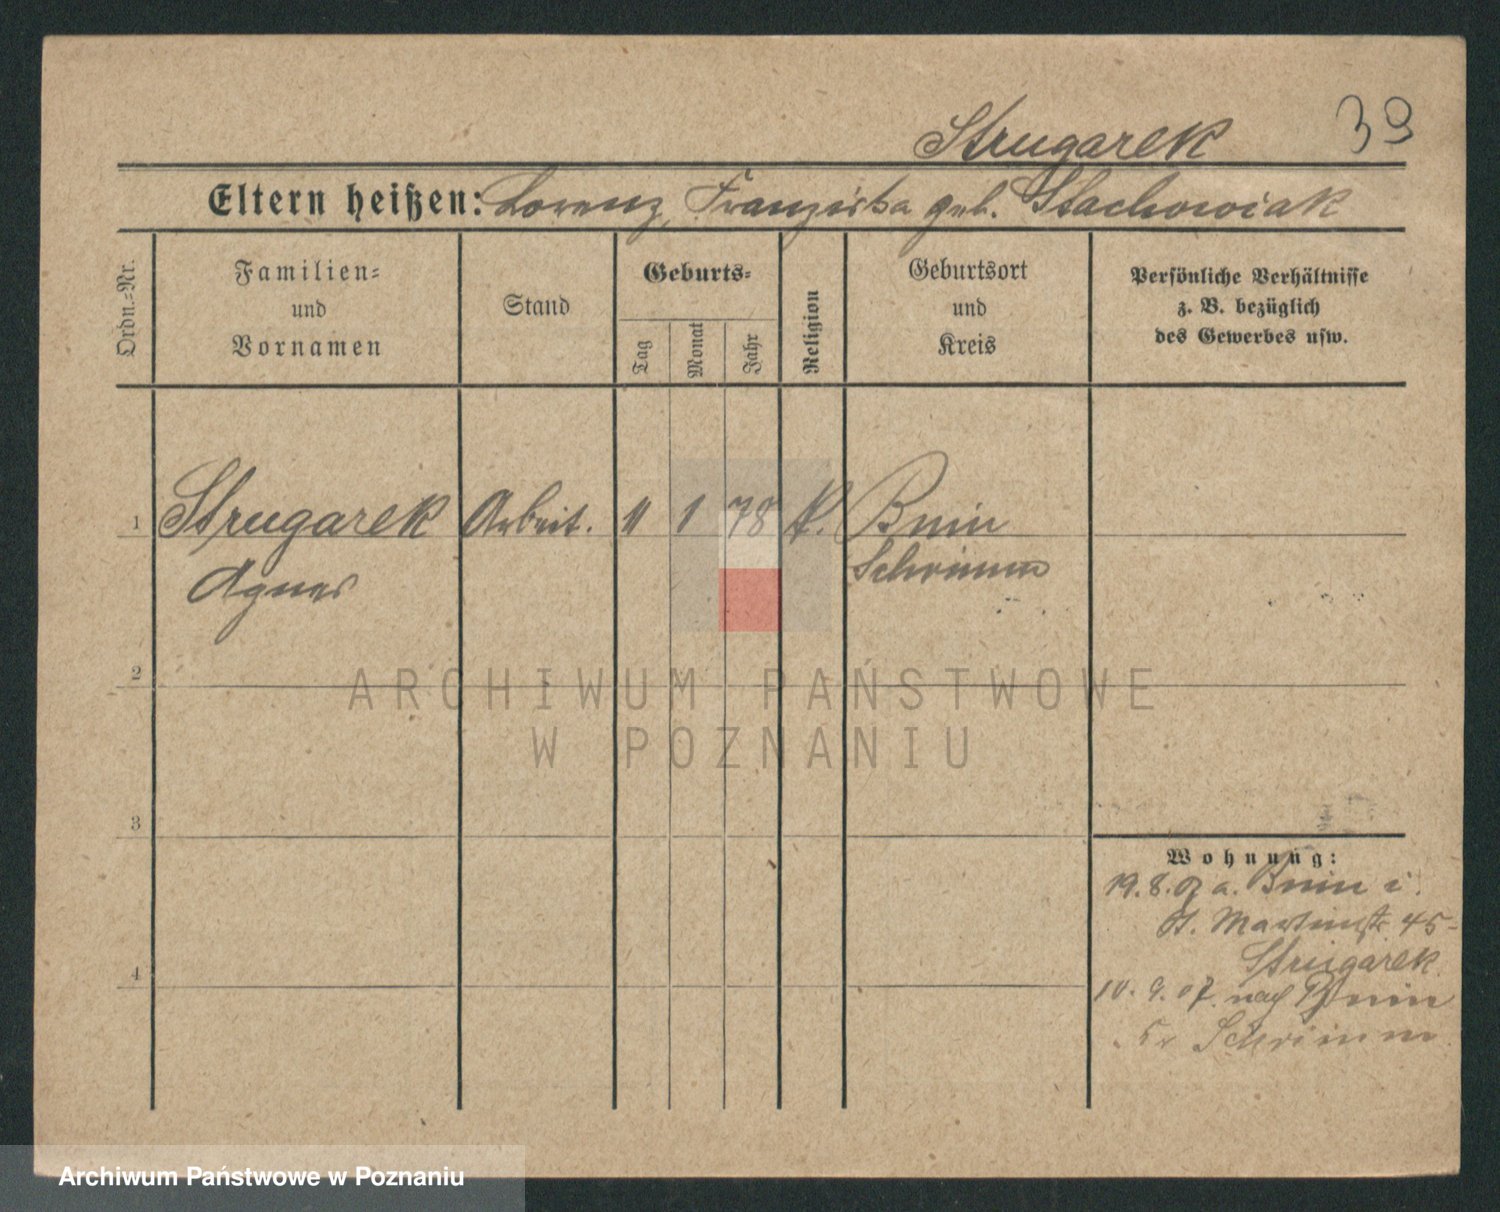 39
Strugarek
Eltern heißen: Lorenz, Franziska geb. Stachowiak
Ordn.-Nr.
Familien-
und
Vornamen
Stand
Geburts-
Tag
Monat
Jahr
Religion
Geburtsort
und
Kreis
Persönliche Verhältnisse
z. B. bezüglich
des Gewerbes usw.
1 Strugarek Arbeit. 11 1 78 K. Bnin
Agnes Schrimm
2
ARCHIWUM PAŃSTWOWE
W POZNANIU
3
Wohnung:
19.8.07 a. Bnin i.
St. Martinstr 45
Strugarek
4
10.9.07. nach Bnin
Kr Schrimm
Archiwum Państwowe w Poznaniu